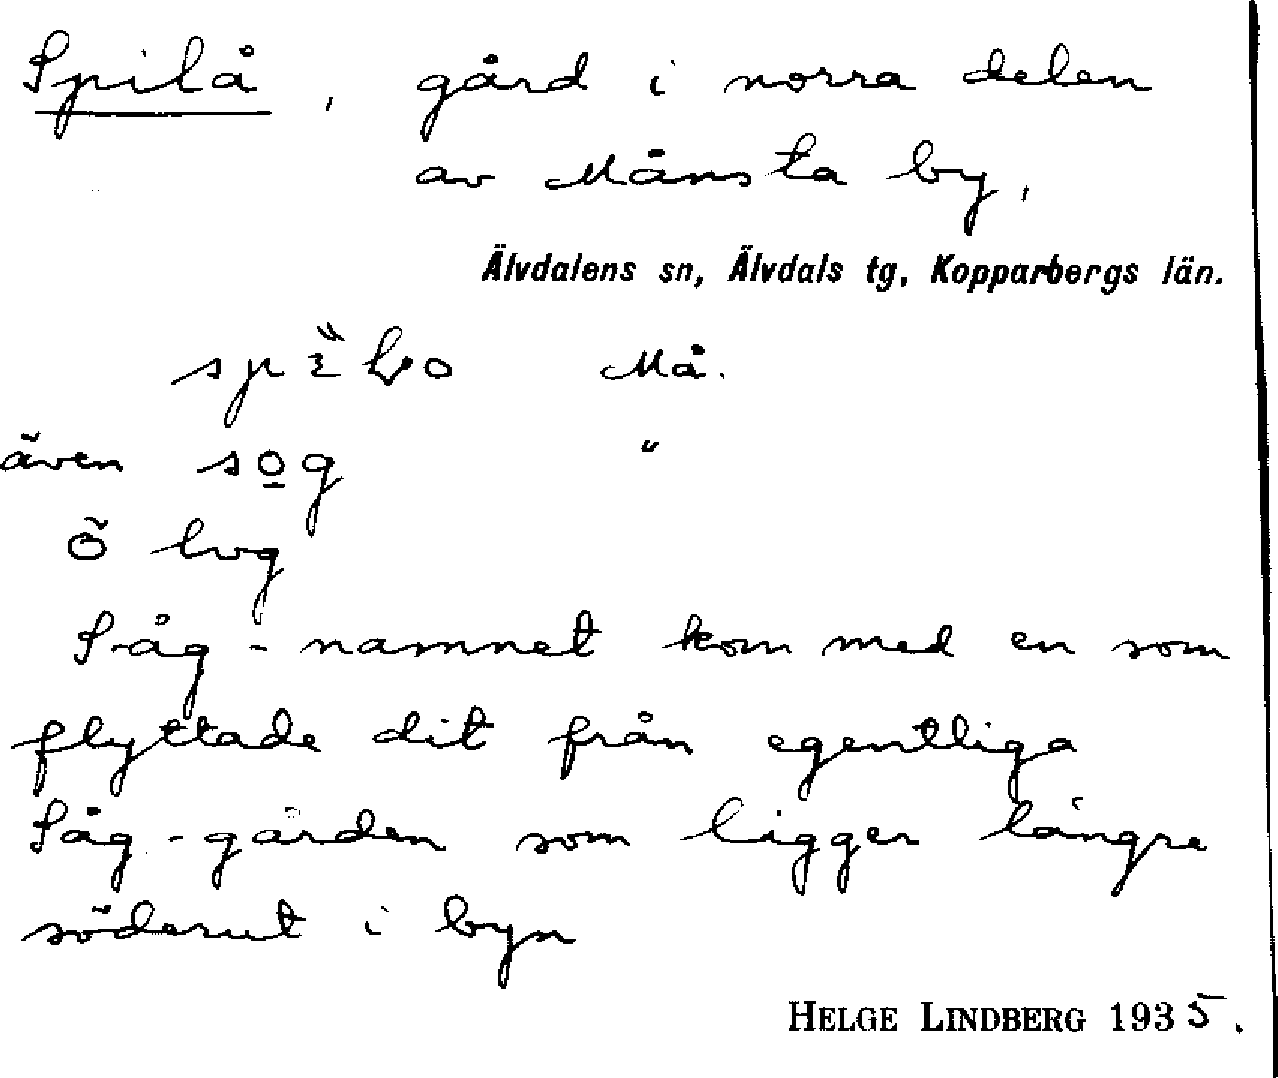 Spilå, gård i norra delen
av Månsta by,
Älvdalens sn, Älvdals tg, Kopparbergs län.
Må.
även so̲g "
Såg-namnet kom med en som
flyttade dit från egentliga
Såg-gården som ligger längre
söderut i byn
HELGE LINDBERG 1935.